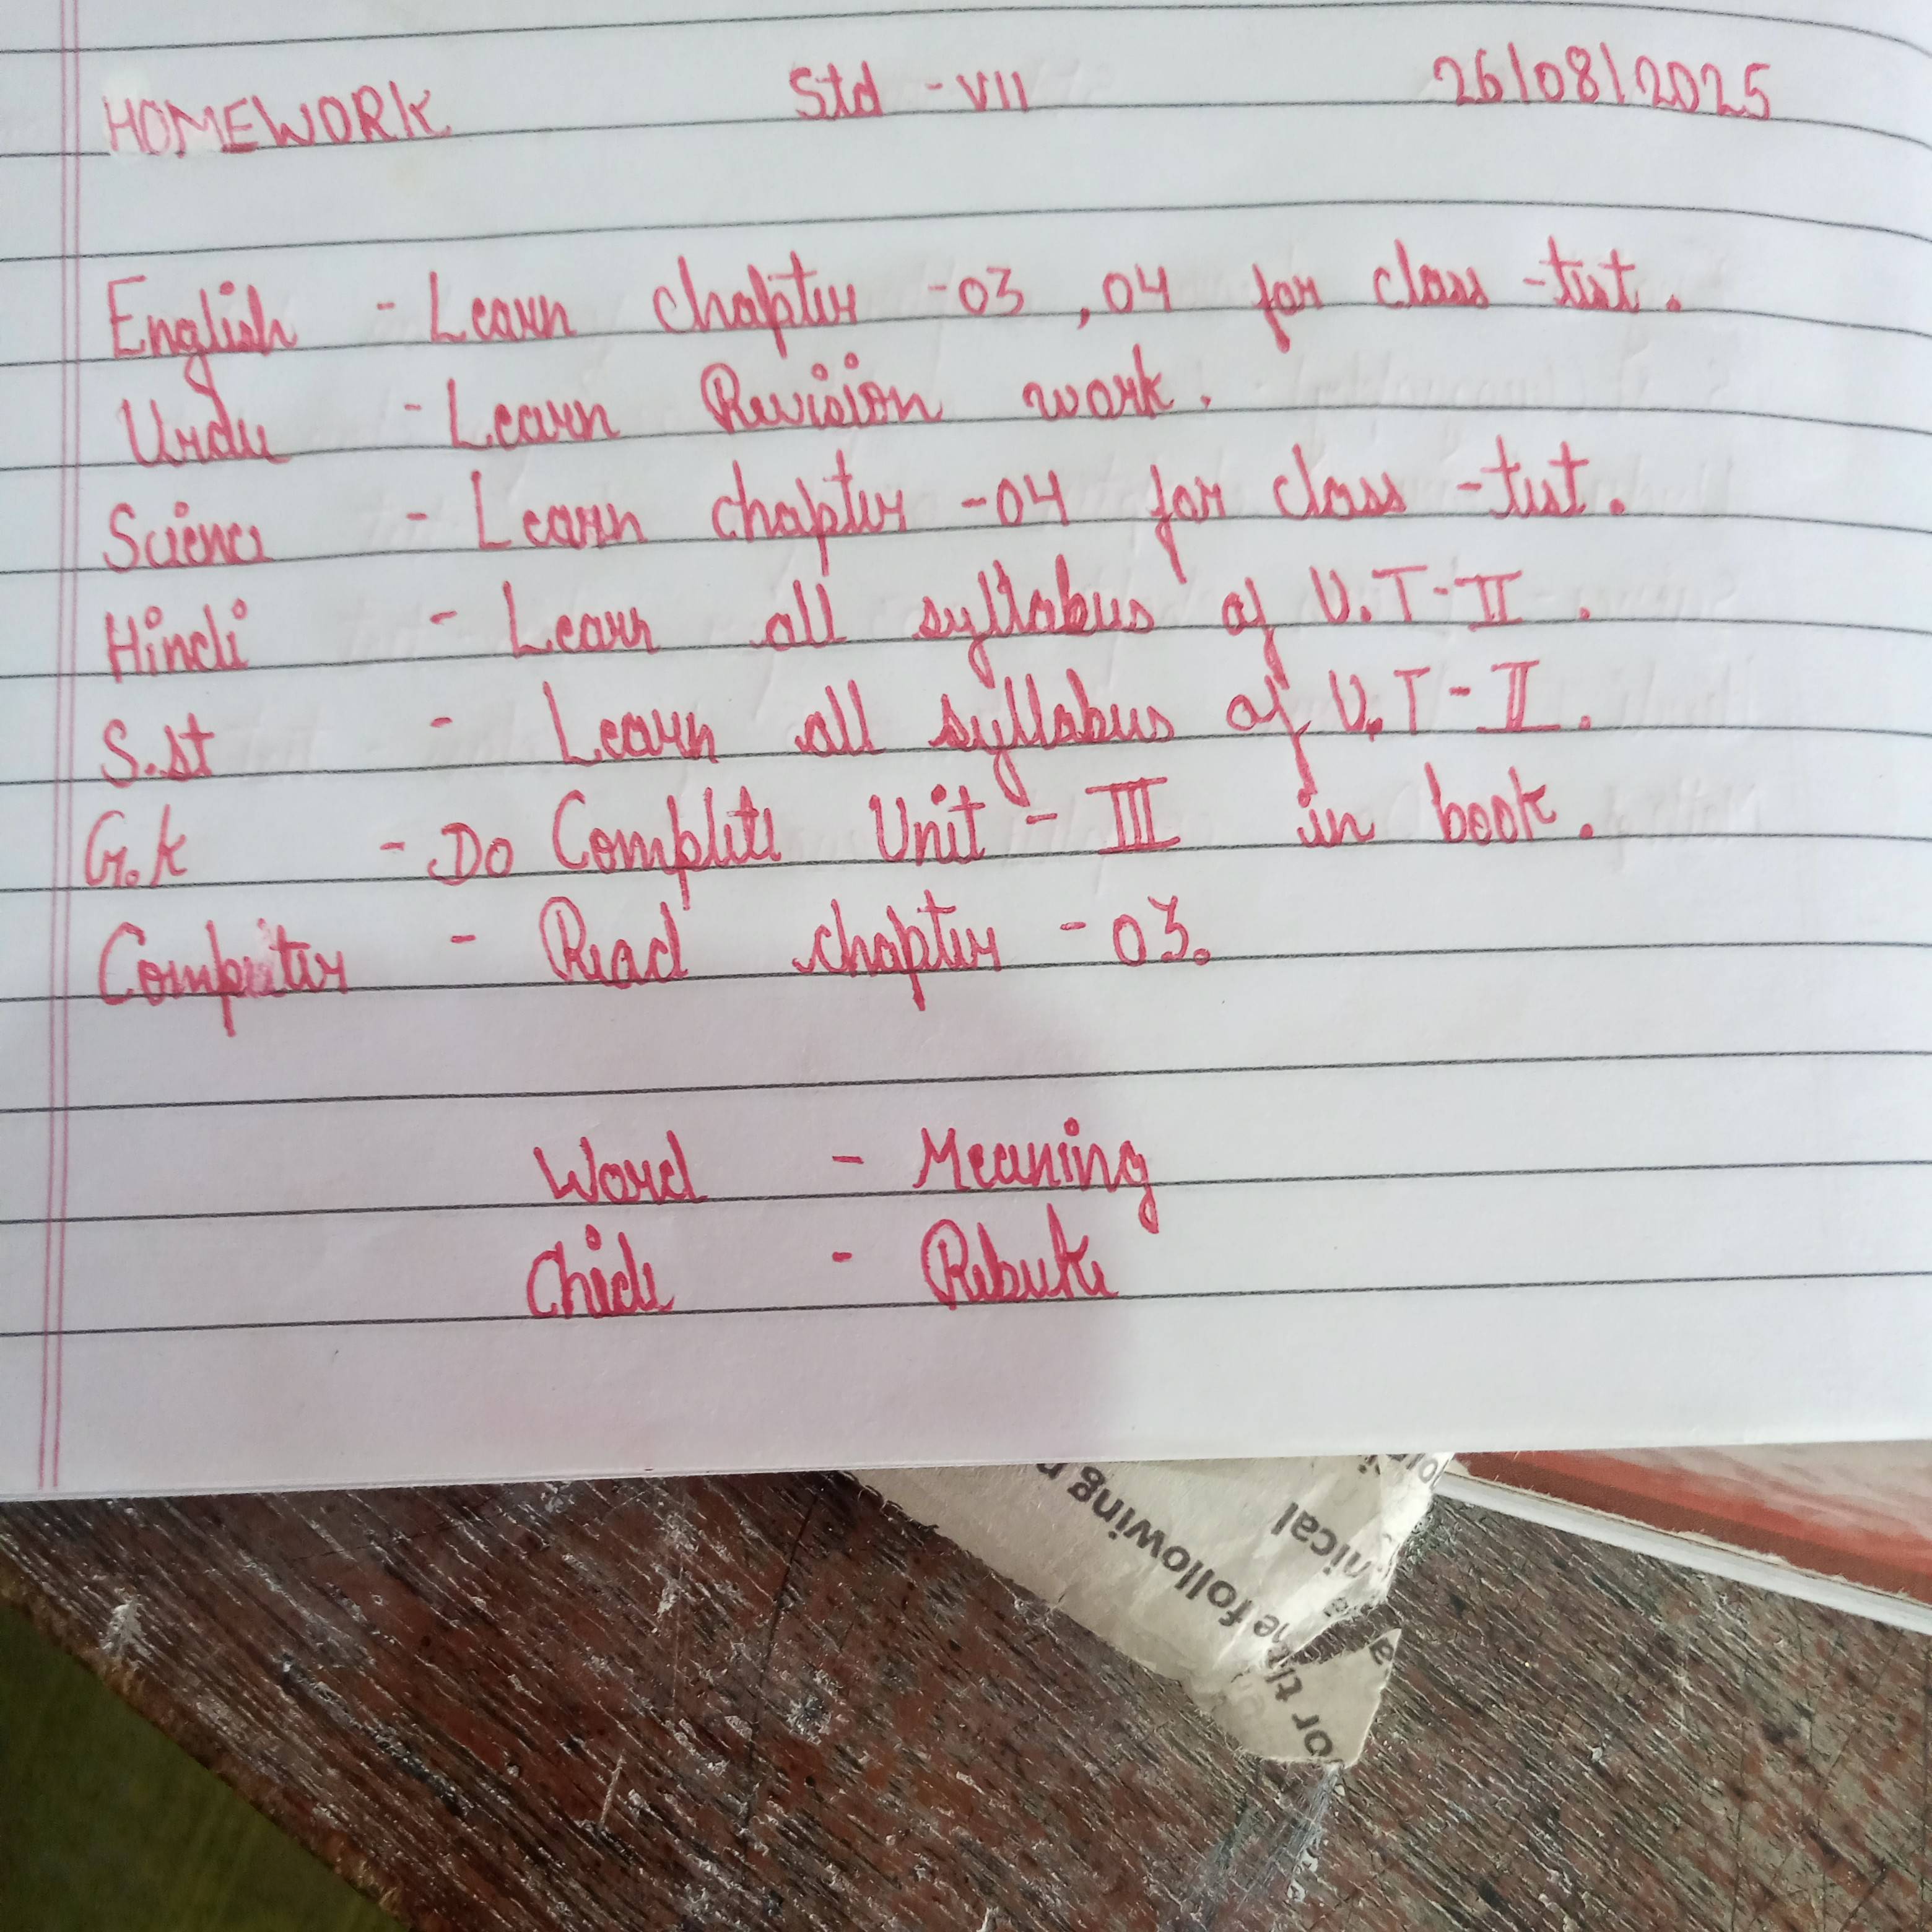 HOMEWORK Std - VII 26/08/2025
English - Learn chapter - 03, 04 for class - test.
Urdu - Learn Revision work.
Science - Learn chapter - 04 for class - test.
Hindi - Learn all syllabus of U.T - II.
S.st - Learn all syllabus of U.T - II.
G.k - Do Complete Unit - III in book.
Computer - Read chapter - 03.
Word - Meaning
Chide - Rebuke
following
nical